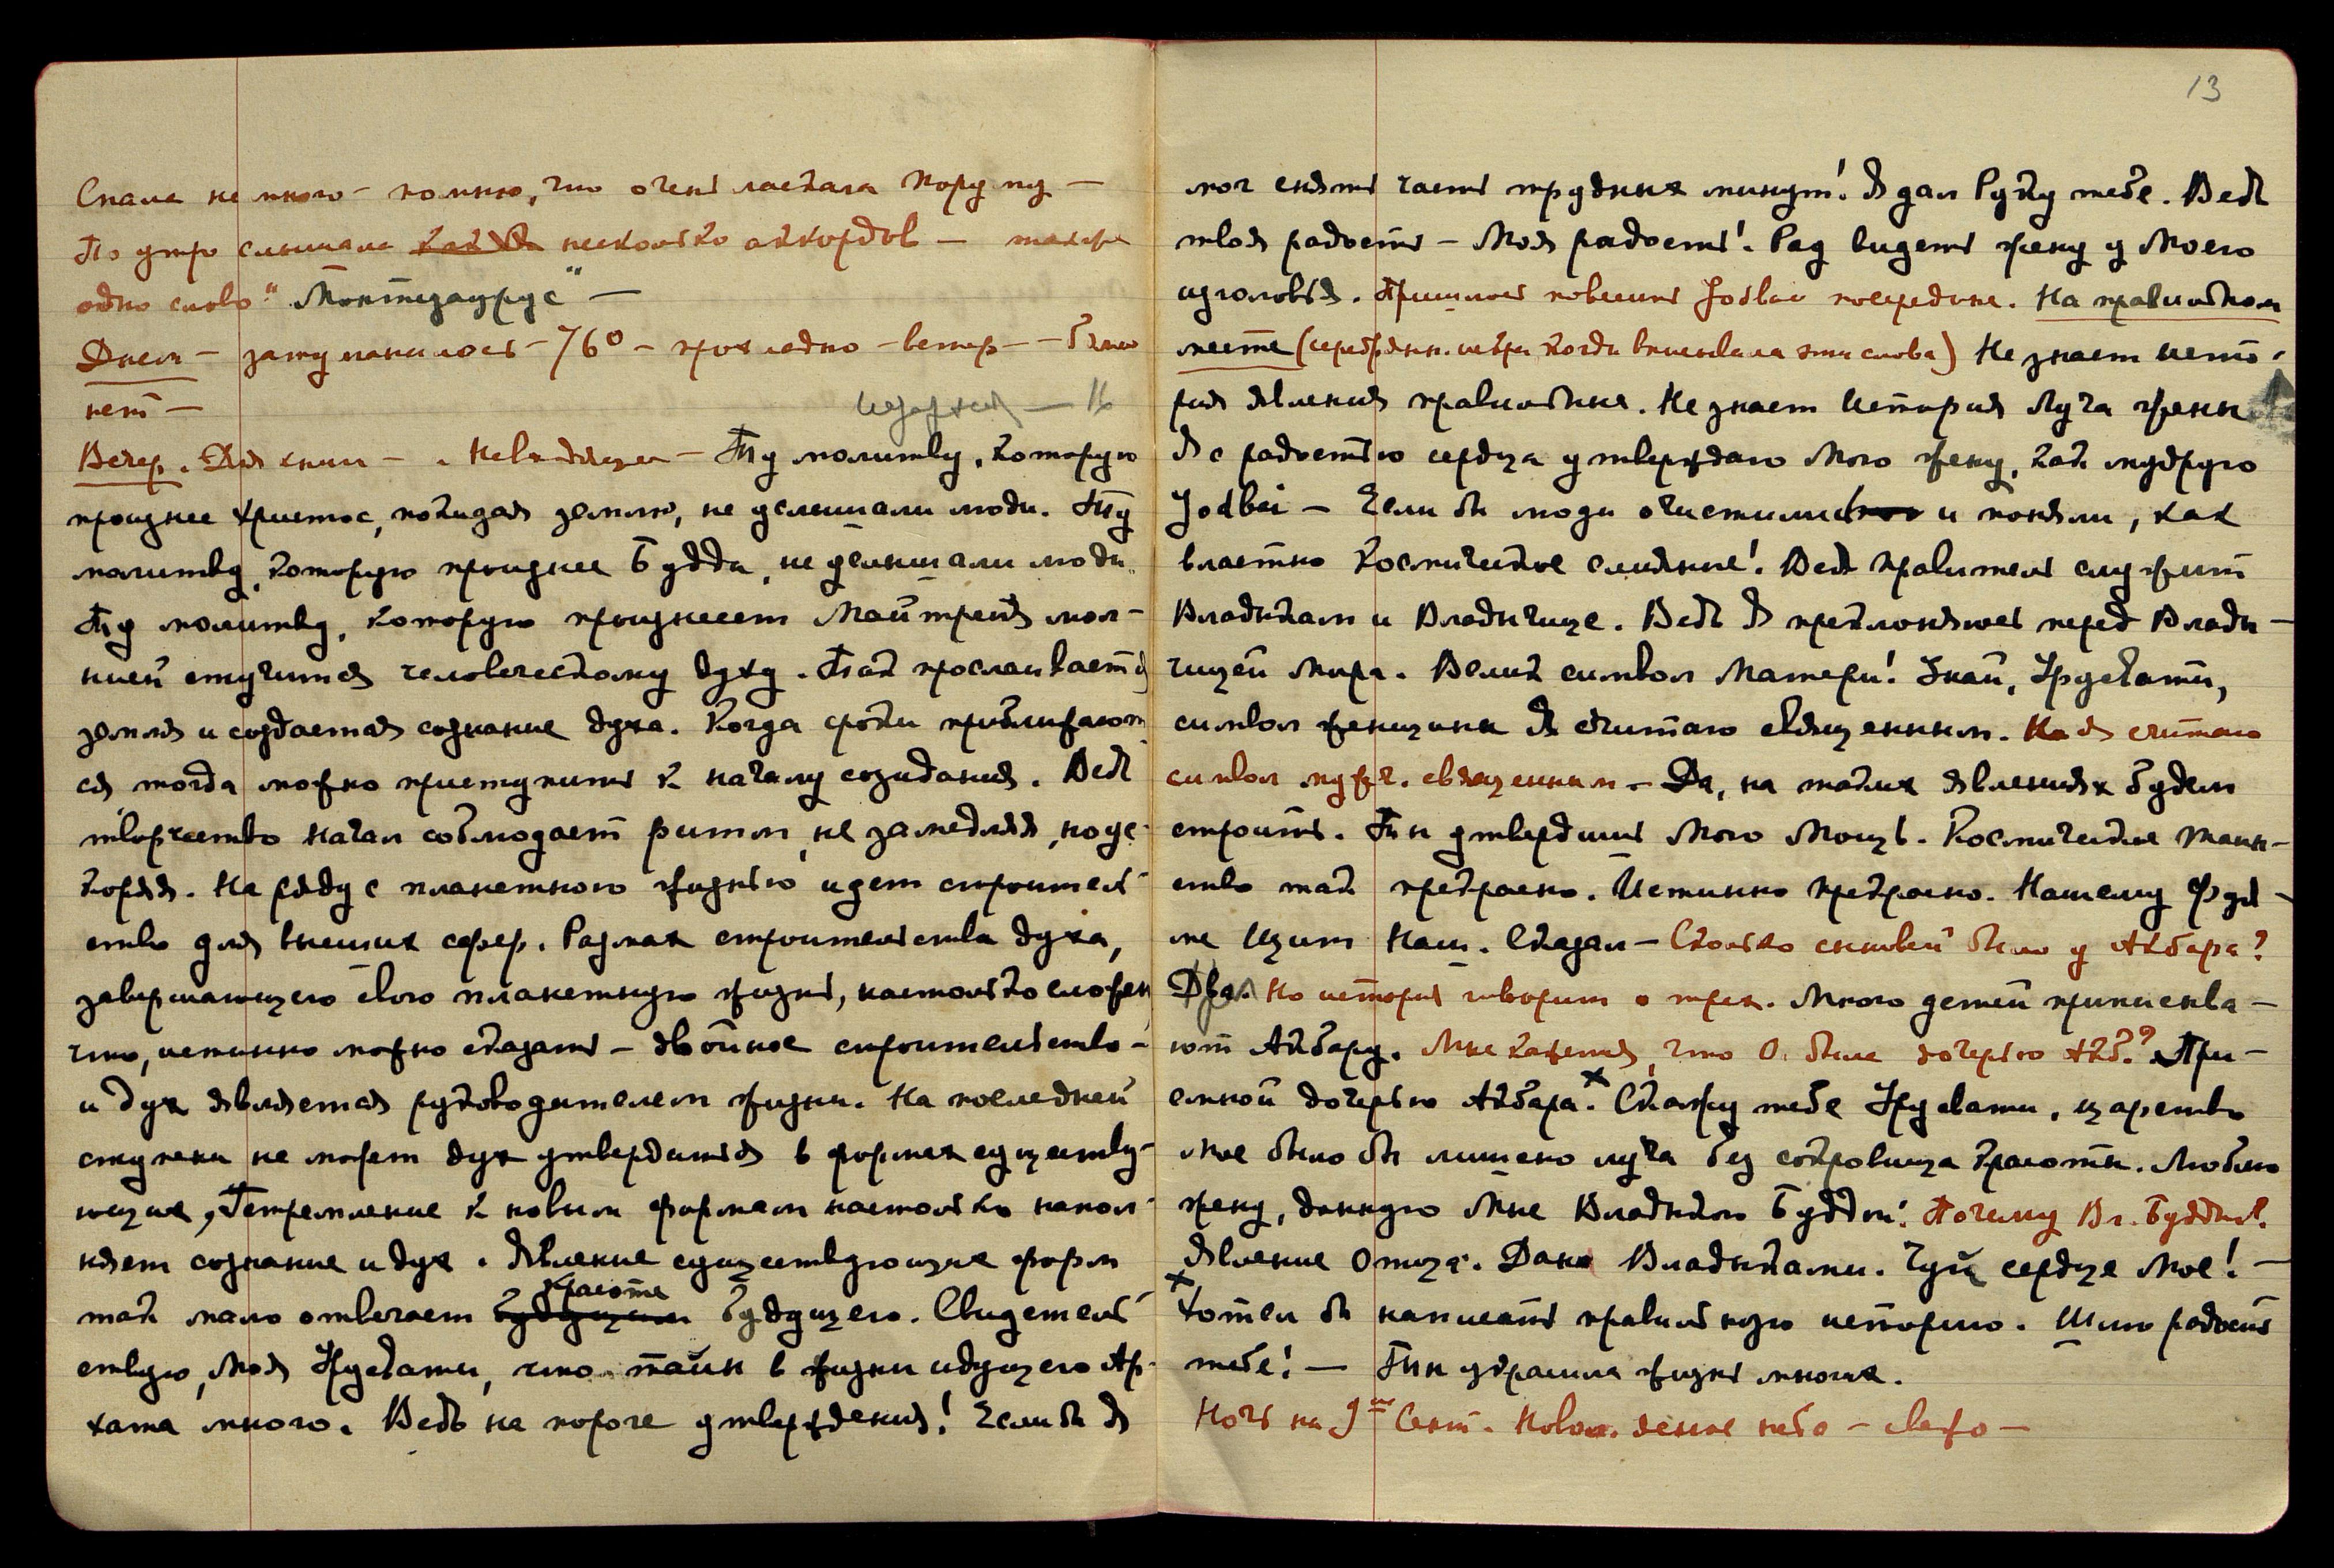 Спала не много – помню, что очень ласкала Порумy –
По утро слышала несколько аккордов – также
одно слово: "Монтизаурус" –
Днем – затуманилось – 76° – прохладно – ветер – – болей
нет –
Вечер. Для книги – Ту молитву, которую
произнес Христос, покидая землю, не услышали люди. Ту
молитву, которую произнес Будда, не услышали люди.
Ту молитву, которую произнесет Майтрейя мол-
нией стучится человеческому духу. Так прослаивается
земля и создается сознание духа. Когда сроки приближают
ся тогда можно приступить к началу созидания. Ведь
творчество Начал соблюдает ритм, не замедляя, но ус-
коряя. На ряду с планетною жизнью идет строитель-
ство для высших сфер. Размах строительства духа,
завершающего свою планетную жизнь, настолько сложен
что, истинно можно сказать – двойное строительство –
и дух является руководителем жизни. На последней
ступени не может дух утвердиться в формах существу-
ющих, Устремление к новым формам настолько напол-
няет сознание и дух. Явление существующих форм
так мало отвечает красоте будущего. Свидетель-
ствую, Моя Урусвати, что тайн в жизни идущего Ар-
хата много. Ведь на пороге утверждения! Если бы Я
13
мог снять часть трудных минут! Я дал Руку тебе. Ведь
твоя радость – Моя радость! Рад видеть жену у Моего
изголовья. Пришлось повесить Jodbai посередине. На правильном
месте (серебрянн. искры когда вписывала эти слова) Не знает исто-
рия явления правильные. Не знает История Луча жены
Я с радостью сердца утверждаю Мою жену, как мудрую
Jodbai – Если бы люди очистились и поняли, как
властно Космическое слияние! Ведь Правитель служит
Владыкам и Владычице. Ведь Я преклоняюсь перед Влады-
чицей Мира. Велик символ Матери! Знай, Урусвати,
символ женщины Я считаю священным. Но я считаю
символ мужч. священным – Да, на таких явлениях будем
строить. Ты утвердишь Мою Мощь. Космическое таин-
ство так прекрасно. Истинно прекрасно. Нашему Фуя-
ме Щит Наш. Сказал – Сколько сыновей было у Акбара?
Два. Но история говорит о трех. Много детей приписыва-
ют Акбару. Мне кажется, что О. была дочерью Акб.? При-
емной дочерью Акбара. Скажу тебе Урусвати, царство
мое было бы лишено луча без сокровища красоты. Люблю
жену, данную Мне Владыкою Буддой! Почему Вл. Буддой?
Явление Отца. Дана Владыками. Чуй сердце Мое! –
Хотел бы написать правильную историю. Шлю радость
тебе! – Ты украшала жизнь многих.
Ночь на 9ое Сент. ясное небо – свежо –